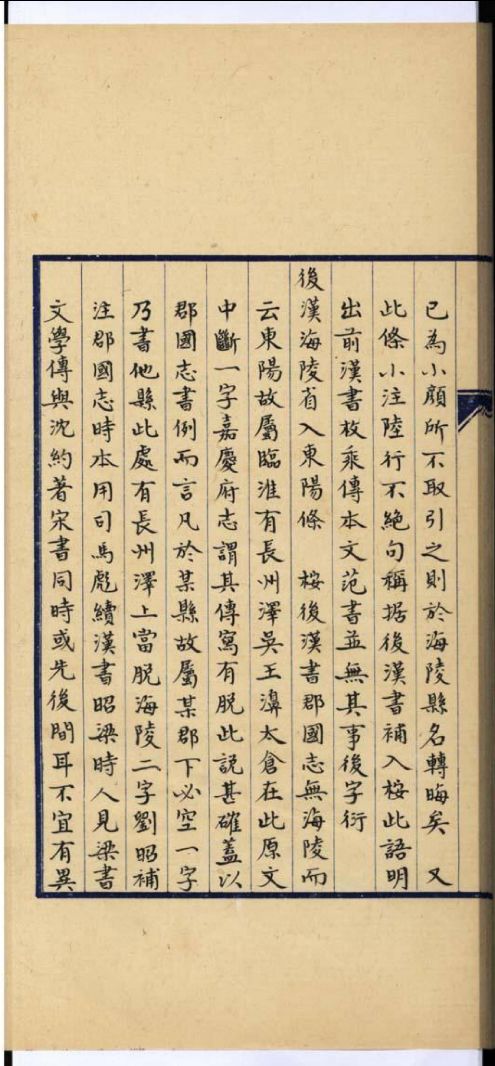 已為小顏所不取引之則於海陵縣名轉晦矣　又
此條小注陸行不絕句稱据後漢書補入桉此語明
出前漢書枚乘傳本文范書並無其事後字衍
後漢海陵省入東陽條　桉後漢書郡國志無海陵而
云東陽故屬臨淮有長州澤吳王濞太倉在此原文
中斷一字嘉慶府志謂其傳寫有脱此説甚確蓋以
郡國志書例而言凡於某縣故屬某郡下必空一字
乃書他縣此處有長州澤上當脱海陵二字劉昭補
注郡國志時本用司馬彪續漢書昭梁時人見梁書
文學傳與沈約著宋書同時或先後間耳不宜有異